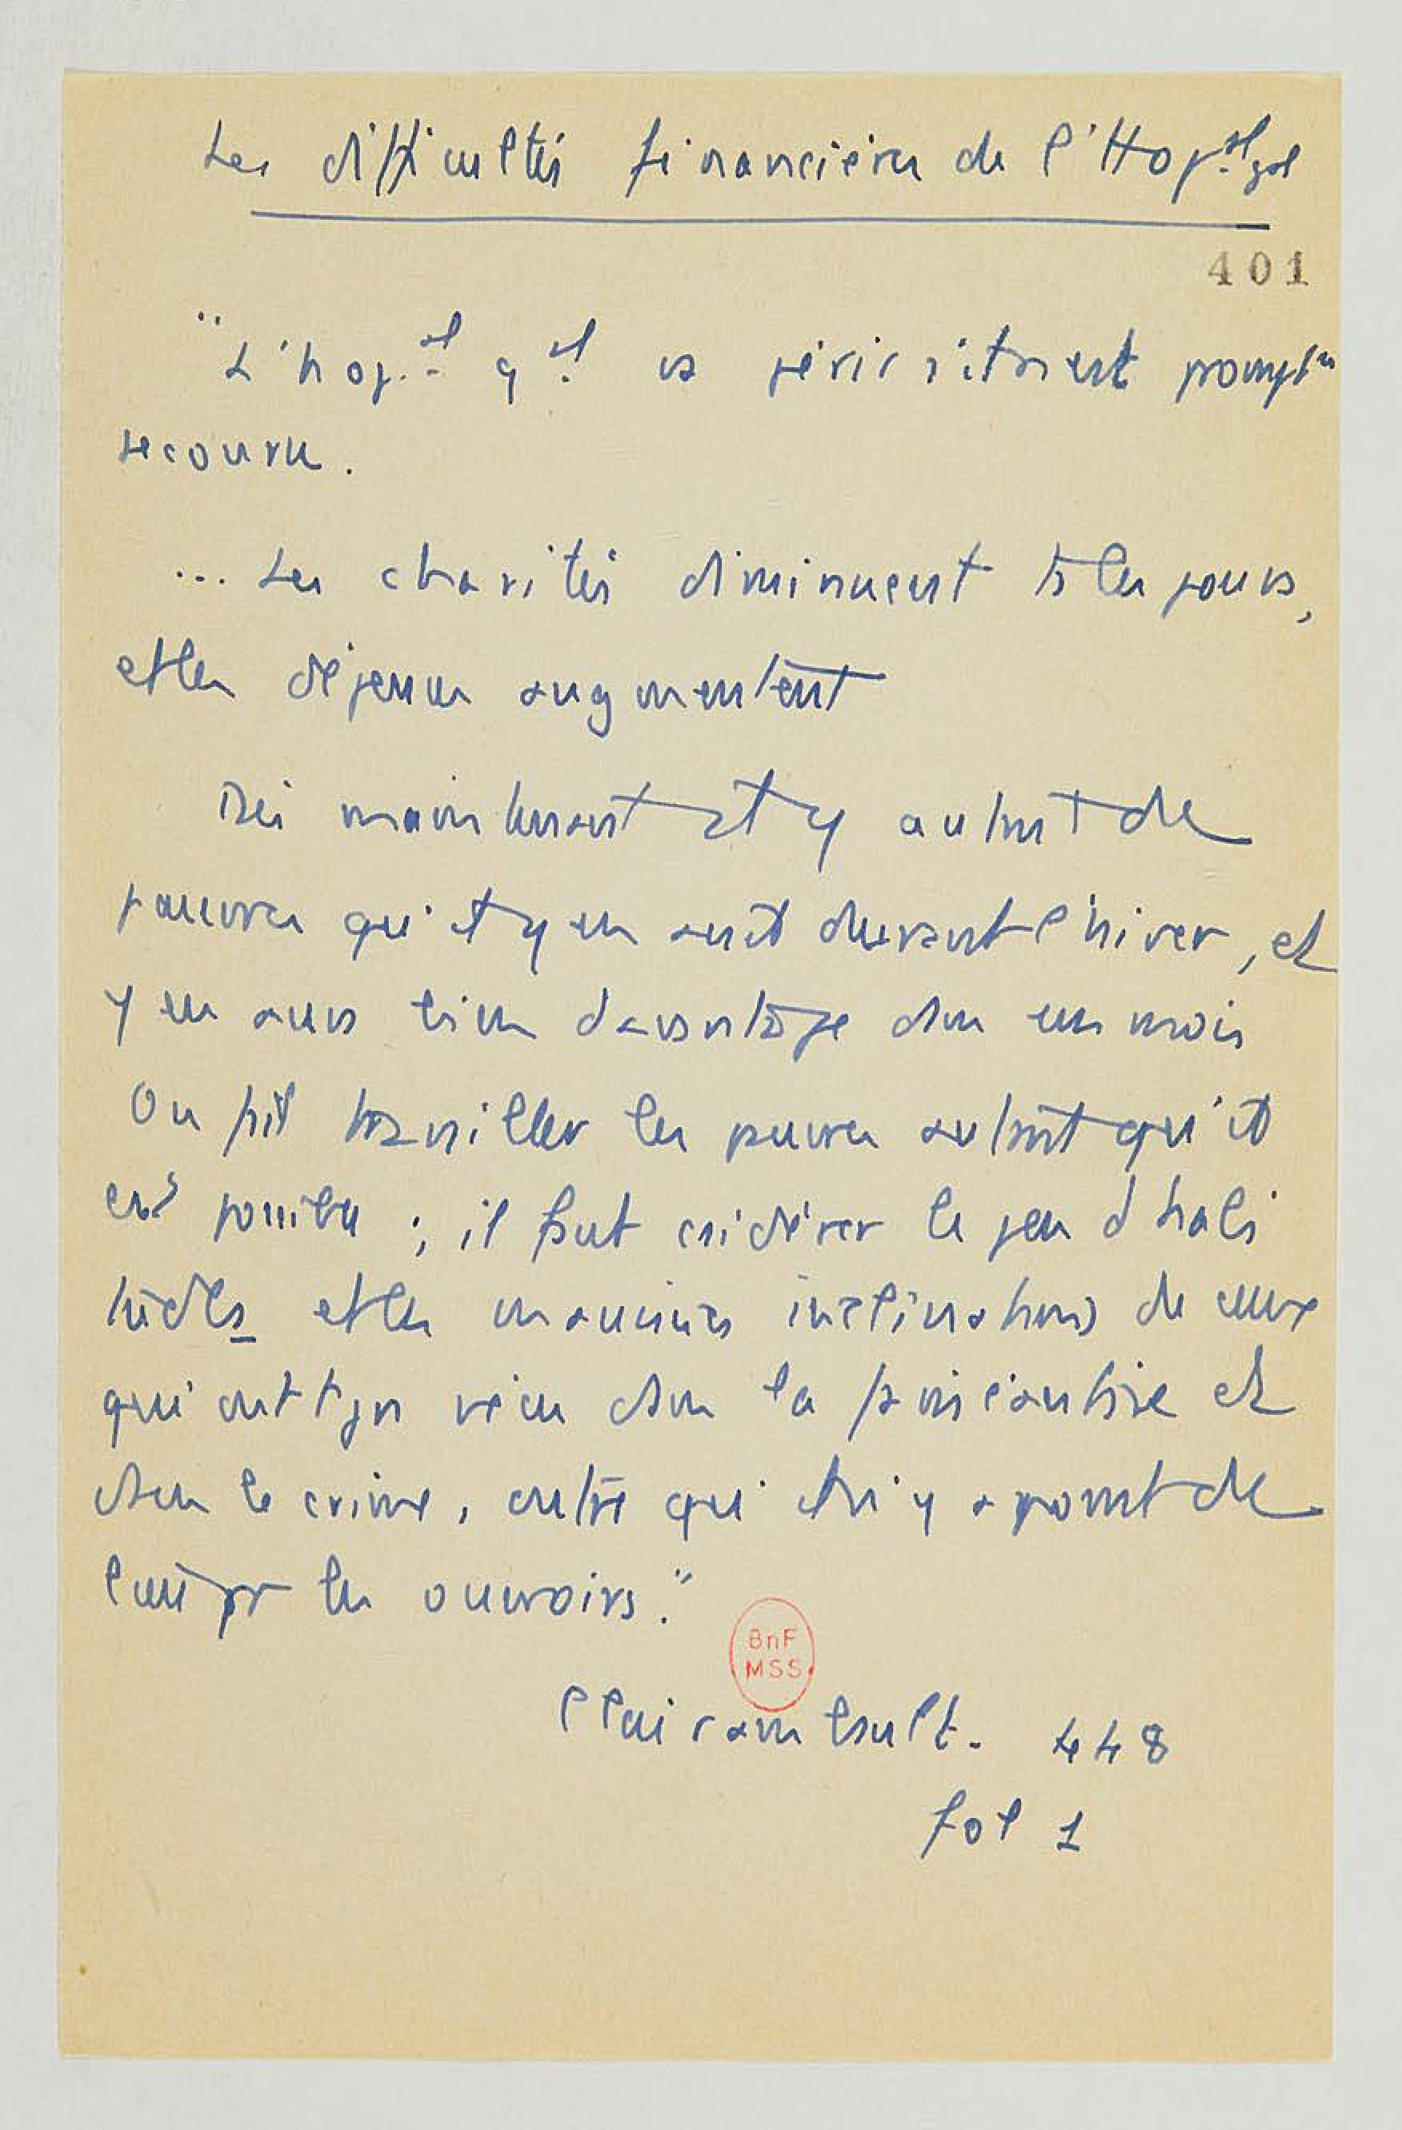 Les difficultés financières de l'Hop.al gal
401
"L'hop.al gal va périr s'il n'est promptmt
secouru.
... Les charités diminuent ts les jours,
et les dépenses augmentent
Dès maintenant il y a autant de
pauvres qu'il y en avait durant l'hiver, et
y en aura bien davantage dans un mois
On fait travailler les pauvres autant qu'il
est possible ; il faut considérer le peu d'habi
tudes et les mauvaises inclinations de ceux
qui ont tjrs vécu dans la fainéantise et
dans le crime, outre qu'il n'y a point de
lieux pr les ouvroirs."
BnF
MSS
Clairambault. 448
fol 1